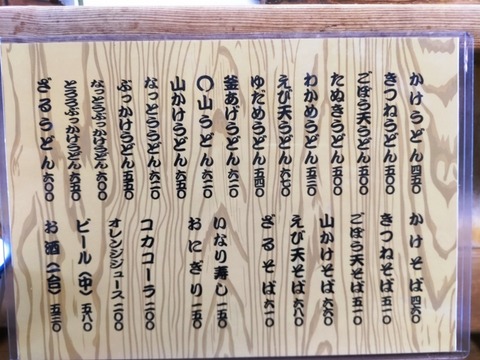 かけうどん 四五〇
きつねうどん 五〇〇
ごぼう天うどん 五〇〇
たぬきうどん 五〇〇
わかめうどん 五三〇
えび天うどん 六七〇
ゆだめうどん 五四〇
釜あげうどん 六二〇
〇山うどん 六二〇
山かけうどん 六五〇
なっとううどん 六二〇
ぶっかけうどん 五五〇
なっとうぶっかけうどん 六〇〇
とろろぶっかけうどん 六五〇
ざるうどん 六〇〇
かけそば 四六〇
きつねそば 五一〇
ごぼう天そば 五一〇
山かけそば 六六〇
えび天そば 六八〇
ざるそば 六一〇
いなり寿し 一五〇
おにぎり 一五〇
コカコーラ 一〇〇
オレンジジュース 一〇〇
ビール(中) 五八〇
お酒(一合) 五三〇